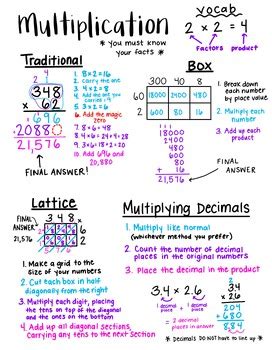 Multiplication
* You must know your facts *
vocab
2 × 2 = 4
factors product
Traditional
2 4
348
× 62
696
20880
21,576
FINAL ANSWER!
1. 8 × 2 = 16
2. Carry the one
3. 4 × 2 = 8
4. Add the one you carried = 9
5. 3 × 2 = 6
6. Add the magic zero
7. 8 × 6 = 48
8. 4 × 6 = 24 + 4 = 28
9. 3 × 6 = 18 + 2 = 20
10. Add 696 and 20,880
Box
300 40 8
60 18000 2400 480
2 600 80 16
1. Break down each number by place value
2. Multiply each number
3. Add up each product
18000
2400
480
600
80
+ 16
21,576
FINAL ANSWER
Lattice
3 4 8 ×
6
2
FINAL ANSWER
21,576
1. Make a grid to the size of your numbers
2. Cut each box in half diagonally from the right
3. Multiply each digit, placing the tens on top of the diagonal and the ones on the bottom
4. Add up all diagonal sections, carrying any tens to the next section
Multiplying Decimals
1. Multiply like normal
(whichever method you prefer)
2. Count the number of decimal places in the original numbers
3. Place the decimal in the product
3.4 × 2.6
1 decimal place
1 decimal place
= 2 decimal places in answer
3.4
× 2.6
204
+ 680
8.84
* Decimals DO NOT have to line up *